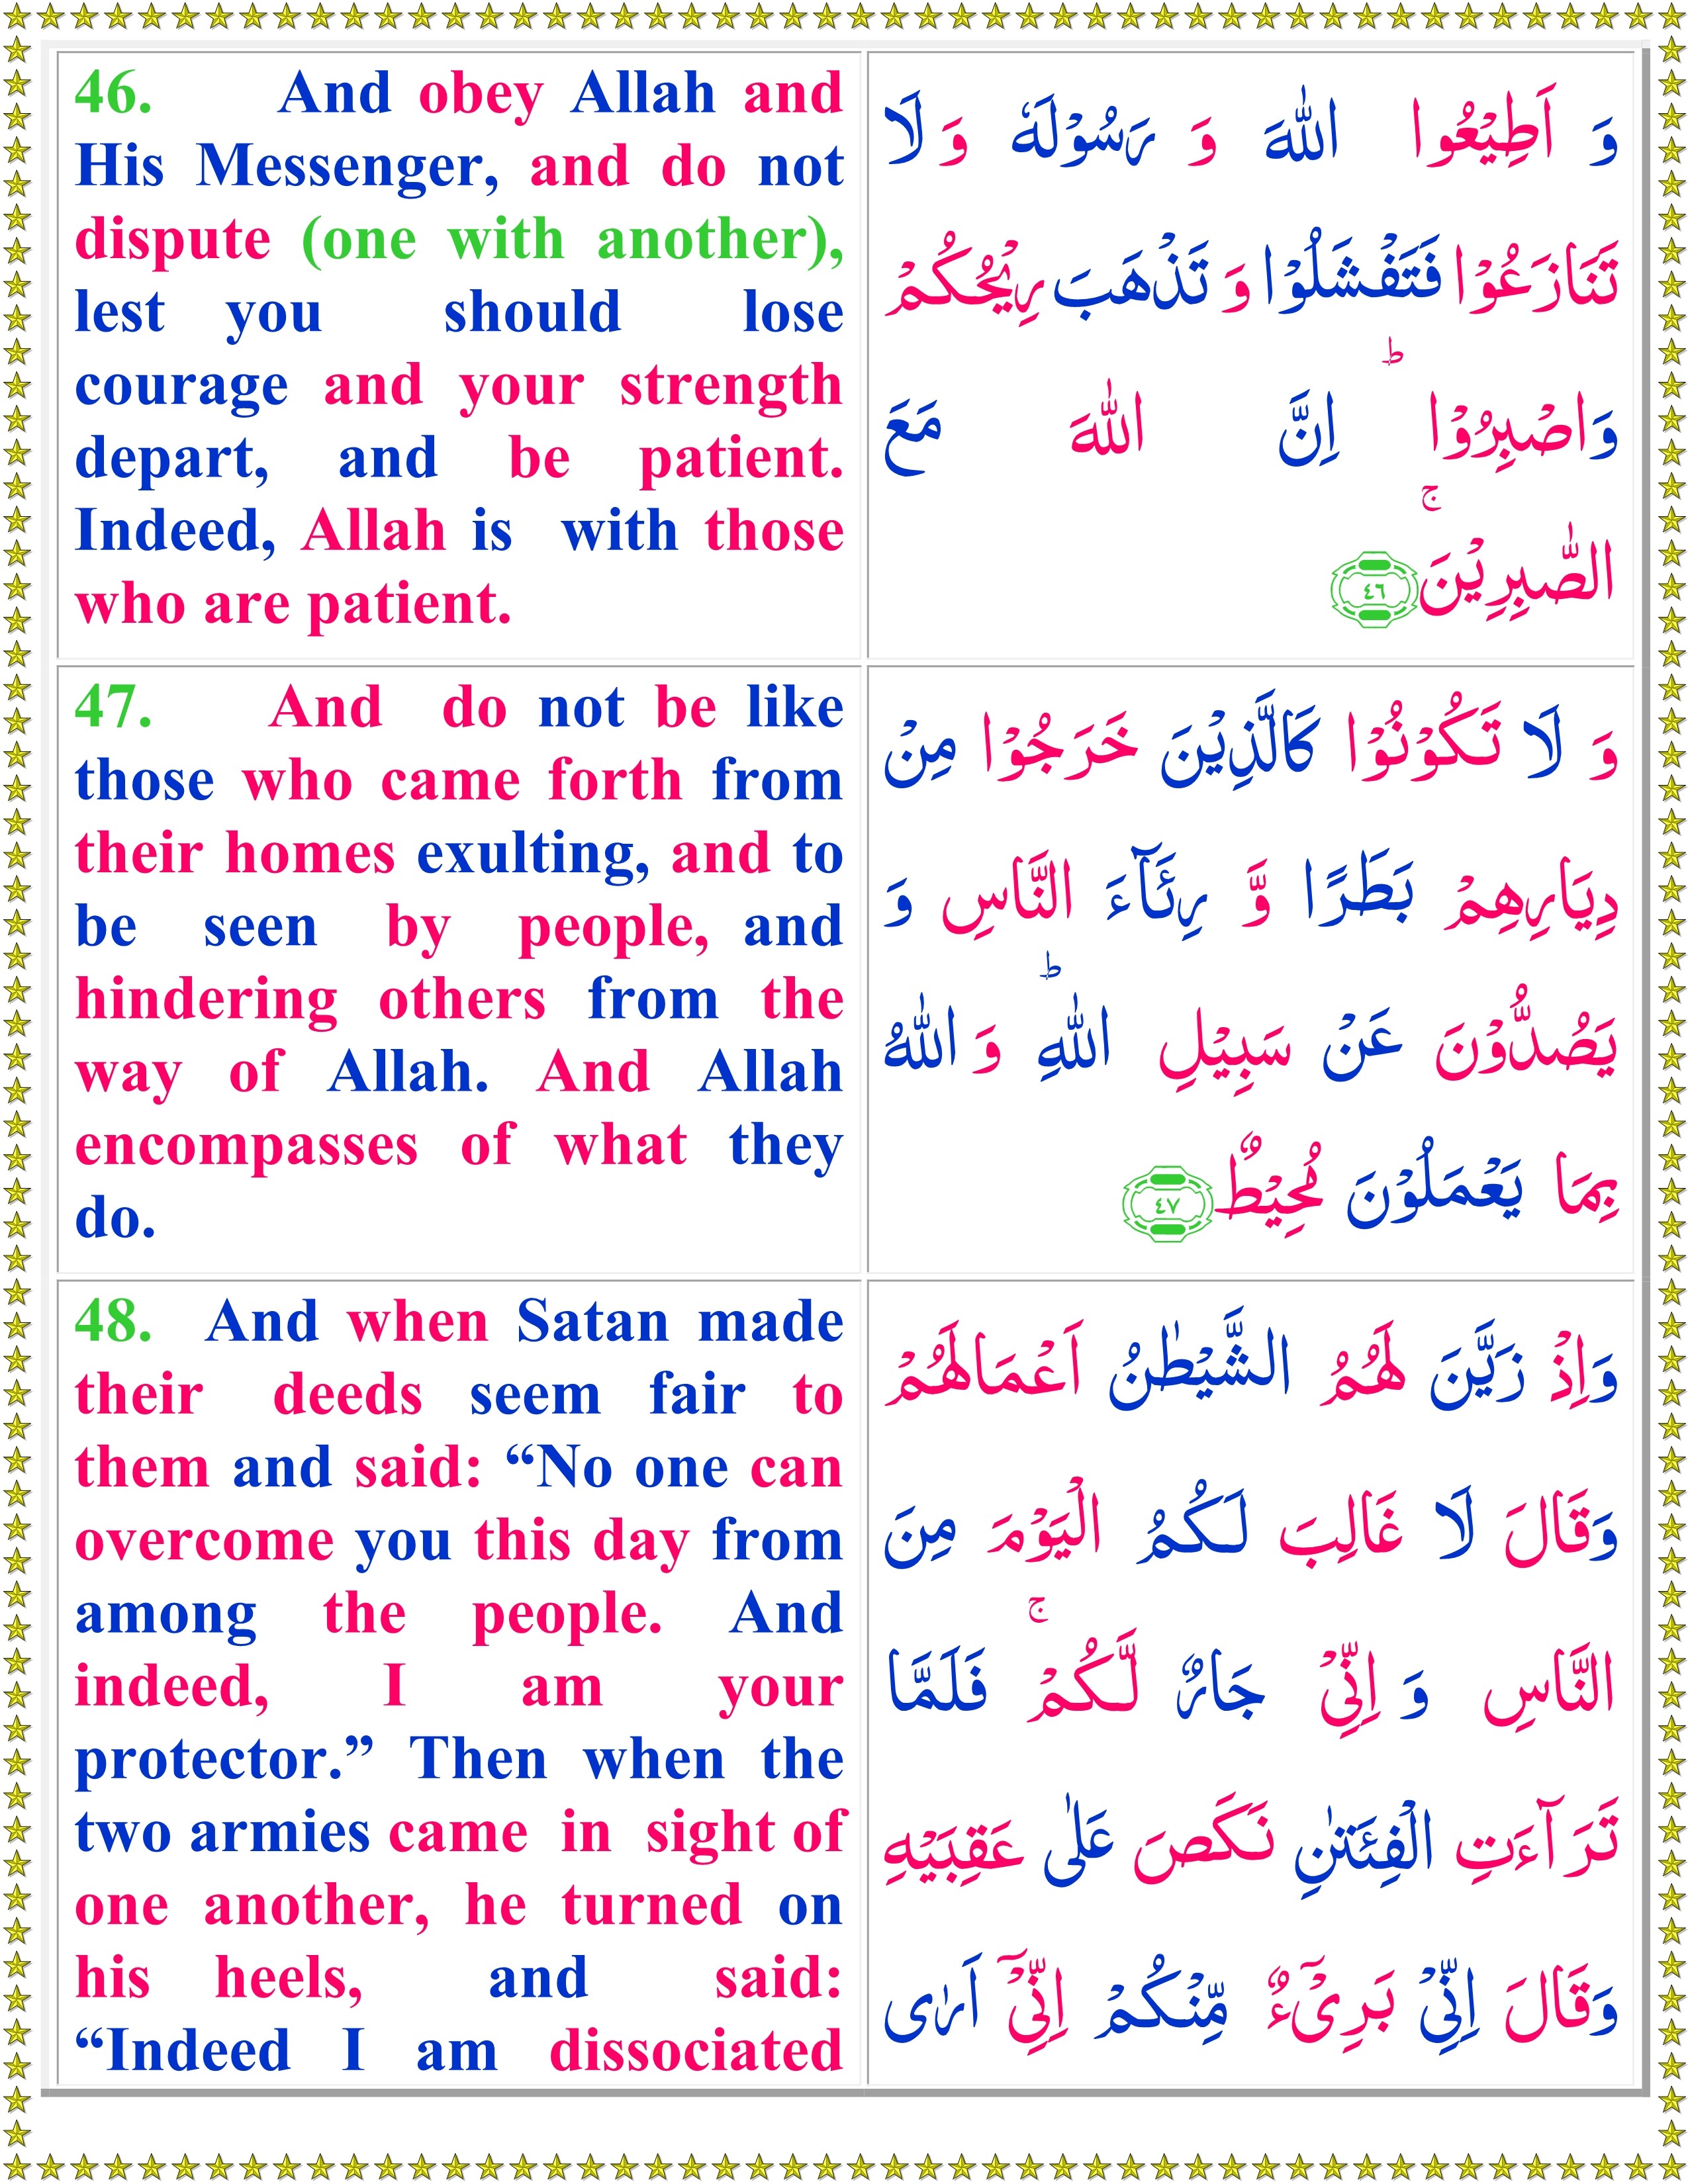 46. And obey Allah and
His Messenger, and do not
dispute (one with another),
lest you should lose
courage and your strength
depart, and be patient.
Indeed, Allah is with those
who are patient.
وَ اَطِيْعُوا اللّٰهَ وَ رَسُوْلَهٗ وَ لَا
تَنَازَعُوْا فَتَفْشَلُوْا وَ تَذْهَبَ رِيْحُكُمْ
وَاصْبِرُوْا ؕ اِنَّ اللّٰهَ مَعَ
الصّٰبِرِيْنَ ۚ ﴿٤٦﴾
47. And do not be like
those who came forth from
their homes exulting, and to
be seen by people, and
hindering others from the
way of Allah. And Allah
encompasses of what they
do.
وَ لَا تَكُوْنُوْا كَالَّذِيْنَ خَرَجُوْا مِنْ
دِيَارِهِمْ بَطَرًا وَّ رِئَآءَ النَّاسِ وَ
يَصُدُّوْنَ عَنْ سَبِيْلِ اللّٰهِ ؕ وَ اللّٰهُ
بِمَا يَعْمَلُوْنَ مُحِيْطٌ ﴿٤٧﴾
48. And when Satan made
their deeds seem fair to
them and said: “No one can
overcome you this day from
among the people. And
indeed, I am your
protector.” Then when the
two armies came in sight of
one another, he turned on
his heels, and said:
“Indeed I am dissociated
وَاِذْ زَيَّنَ لَهُمُ الشَّيْطٰنُ اَعْمَالَهُمْ
وَقَالَ لَا غَالِبَ لَكُمُ الْيَوْمَ مِنَ
النَّاسِ وَ اِنِّىْ جَارٌ لَّكُمْ ۚ فَلَمَّا
تَرَآءَتِ الْفِئَتٰنِ نَكَصَ عَلٰى عَقِبَيْهِ
وَقَالَ اِنِّىْ بَرِىْٓءٌ مِّنْكُمْ اِنِّىْۤ اَرٰى